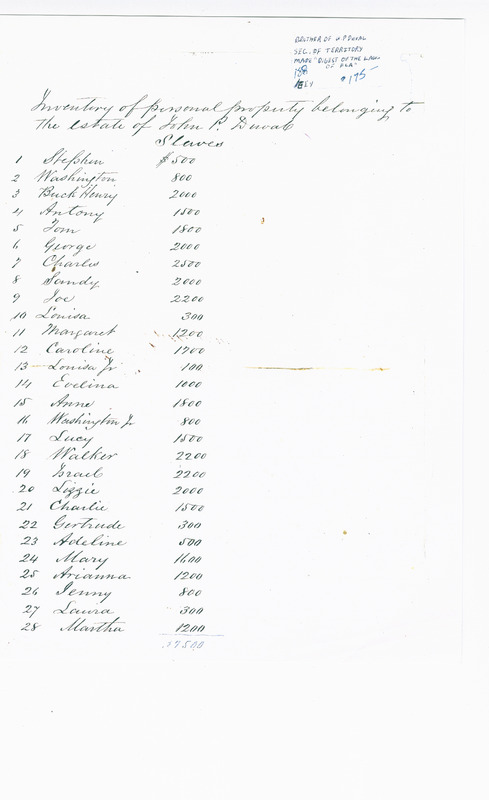 BROTHER OF W P DUVAL
SEC. OF TERRITORY
MADE "DIGEST OF THE LAWS
OF FLA"
Inventory of personal property belonging to
the estate of John P. Duval
Slaves
1 Stephen $500
2 Washington 800
3 Buck Henry 2000
4 Antony 1500
5 Tom 1800
6 George 2000
7 Charles 2500
8 Sandy 2000
9 Joe 2200
10 Louisa 300
11 Margaret 1200
12 Caroline 1700
13 Louisa Jr 100
14 Evelina 1000
15 Anne 1800
16 Washington Jr 800
17 Lucy 1500
18 Walker 2200
19 Israel 2200
20 Lizzie 2000
21 Charlie 1500
22 Gertrude 300
23 Adeline 500
24 Mary 1600
25 Arianna 1200
26 Jenny 800
27 Laura 300
28 Martha 1200